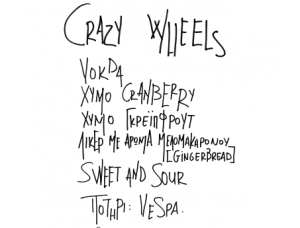 CRAZY WHEELS
VOKDA
ΧΥΜΟ CRANBERRY
ΧΥΜΟ ΓΚΡΕΪΠΦΡΟΥΤ
ΛΙΚΕΡ ΜΕ ΑΡΩΜΑ ΜΕΛΟΜΑΚΑΡΟΝΟΥ
[GINGERBREAD]
SWEET AND SOUR
ΠΟΤΗΡΙ: VESPA.